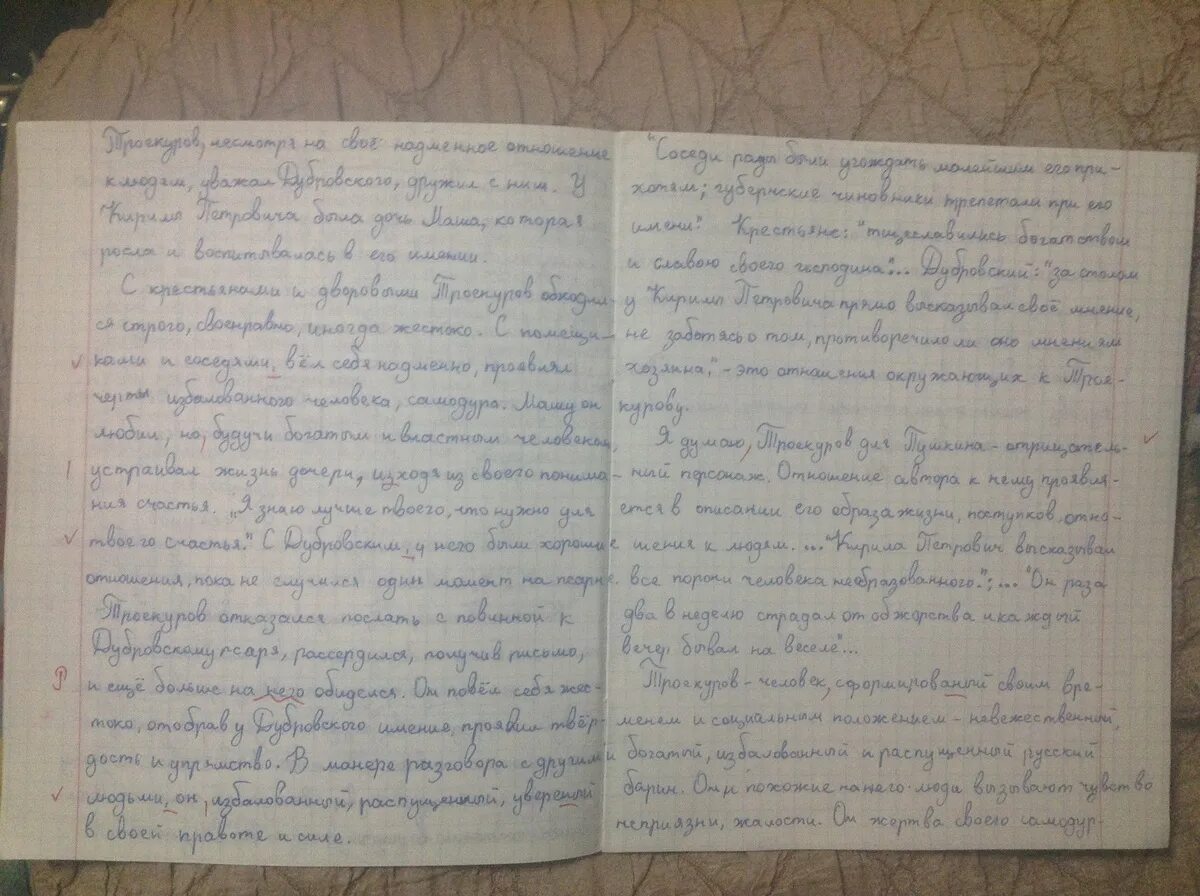 Троекуров, несмотря на своё надменное отношение
к людям, уважал Дубровского, дружил с ним. У
Кирилы Петровича была дочь Маша, которая
росла и воспитывалась в его имении.
С крестьянами и дворовыми Троекуров обходил-
ся строго, своенравно, иногда жестоко. С помещи-
ками и соседями, вёл себя надменно, проявлял
черты избалованного человека, самодура. Машу он
любил, но, будучи богатым и властным человеком,
устраивал жизнь дочери, изходя из своего понима-
ния счастья. „Я знаю лучше твоего, что нужно для
твоего счастья." С Дубровским, у него были хорошие
отношения, пока не случился один момент на псарне.
Троекуров отказался послать с повинной к
Дубровскому псаря, рассердился, получив письмо,
и ещё больше на него обиделся. Он повёл себя жес-
токо, отобрав у Дубровского имение, проявил твёр-
дость и упрямство. В манере разговора с другими
людьми, он, избалованный, распущенный,увереный
в своей правоте и силе.
"Соседи рады были угождать малейшим его при-
хотям; губернские чиновники трепетали при его
имени." Крестьяне: "тщеславились богатством
и славою своего господина"... Дубровский: "за столом
у Кирилы Петровича прямо высказывал своё мнение,
не заботясь о том, противоречило ли оно мнениям
хозяина", - это отношения окружающих к Трое-
курову.
Я думаю, Троекуров для Пушкина - отрицатель-
ный персонаж. Отношение автора к нему проявля-
ется в описании его образа жизни, поступков, отно-
шения к людям. ..."Кирила Петрович высказывал
все пороки человека необразованного.";... "Он раза
два в неделю страдал от обжорства и каждый
вечер бывал на веселе"...
Троекуров - человек, сформированый своим вре-
менем и социальным положением - невежественный,
богатый, избалованный и распущенный русский
барин. Он и похожие на него люди вызывают чувство
неприязни, жалости. Он жертва своего самодур-